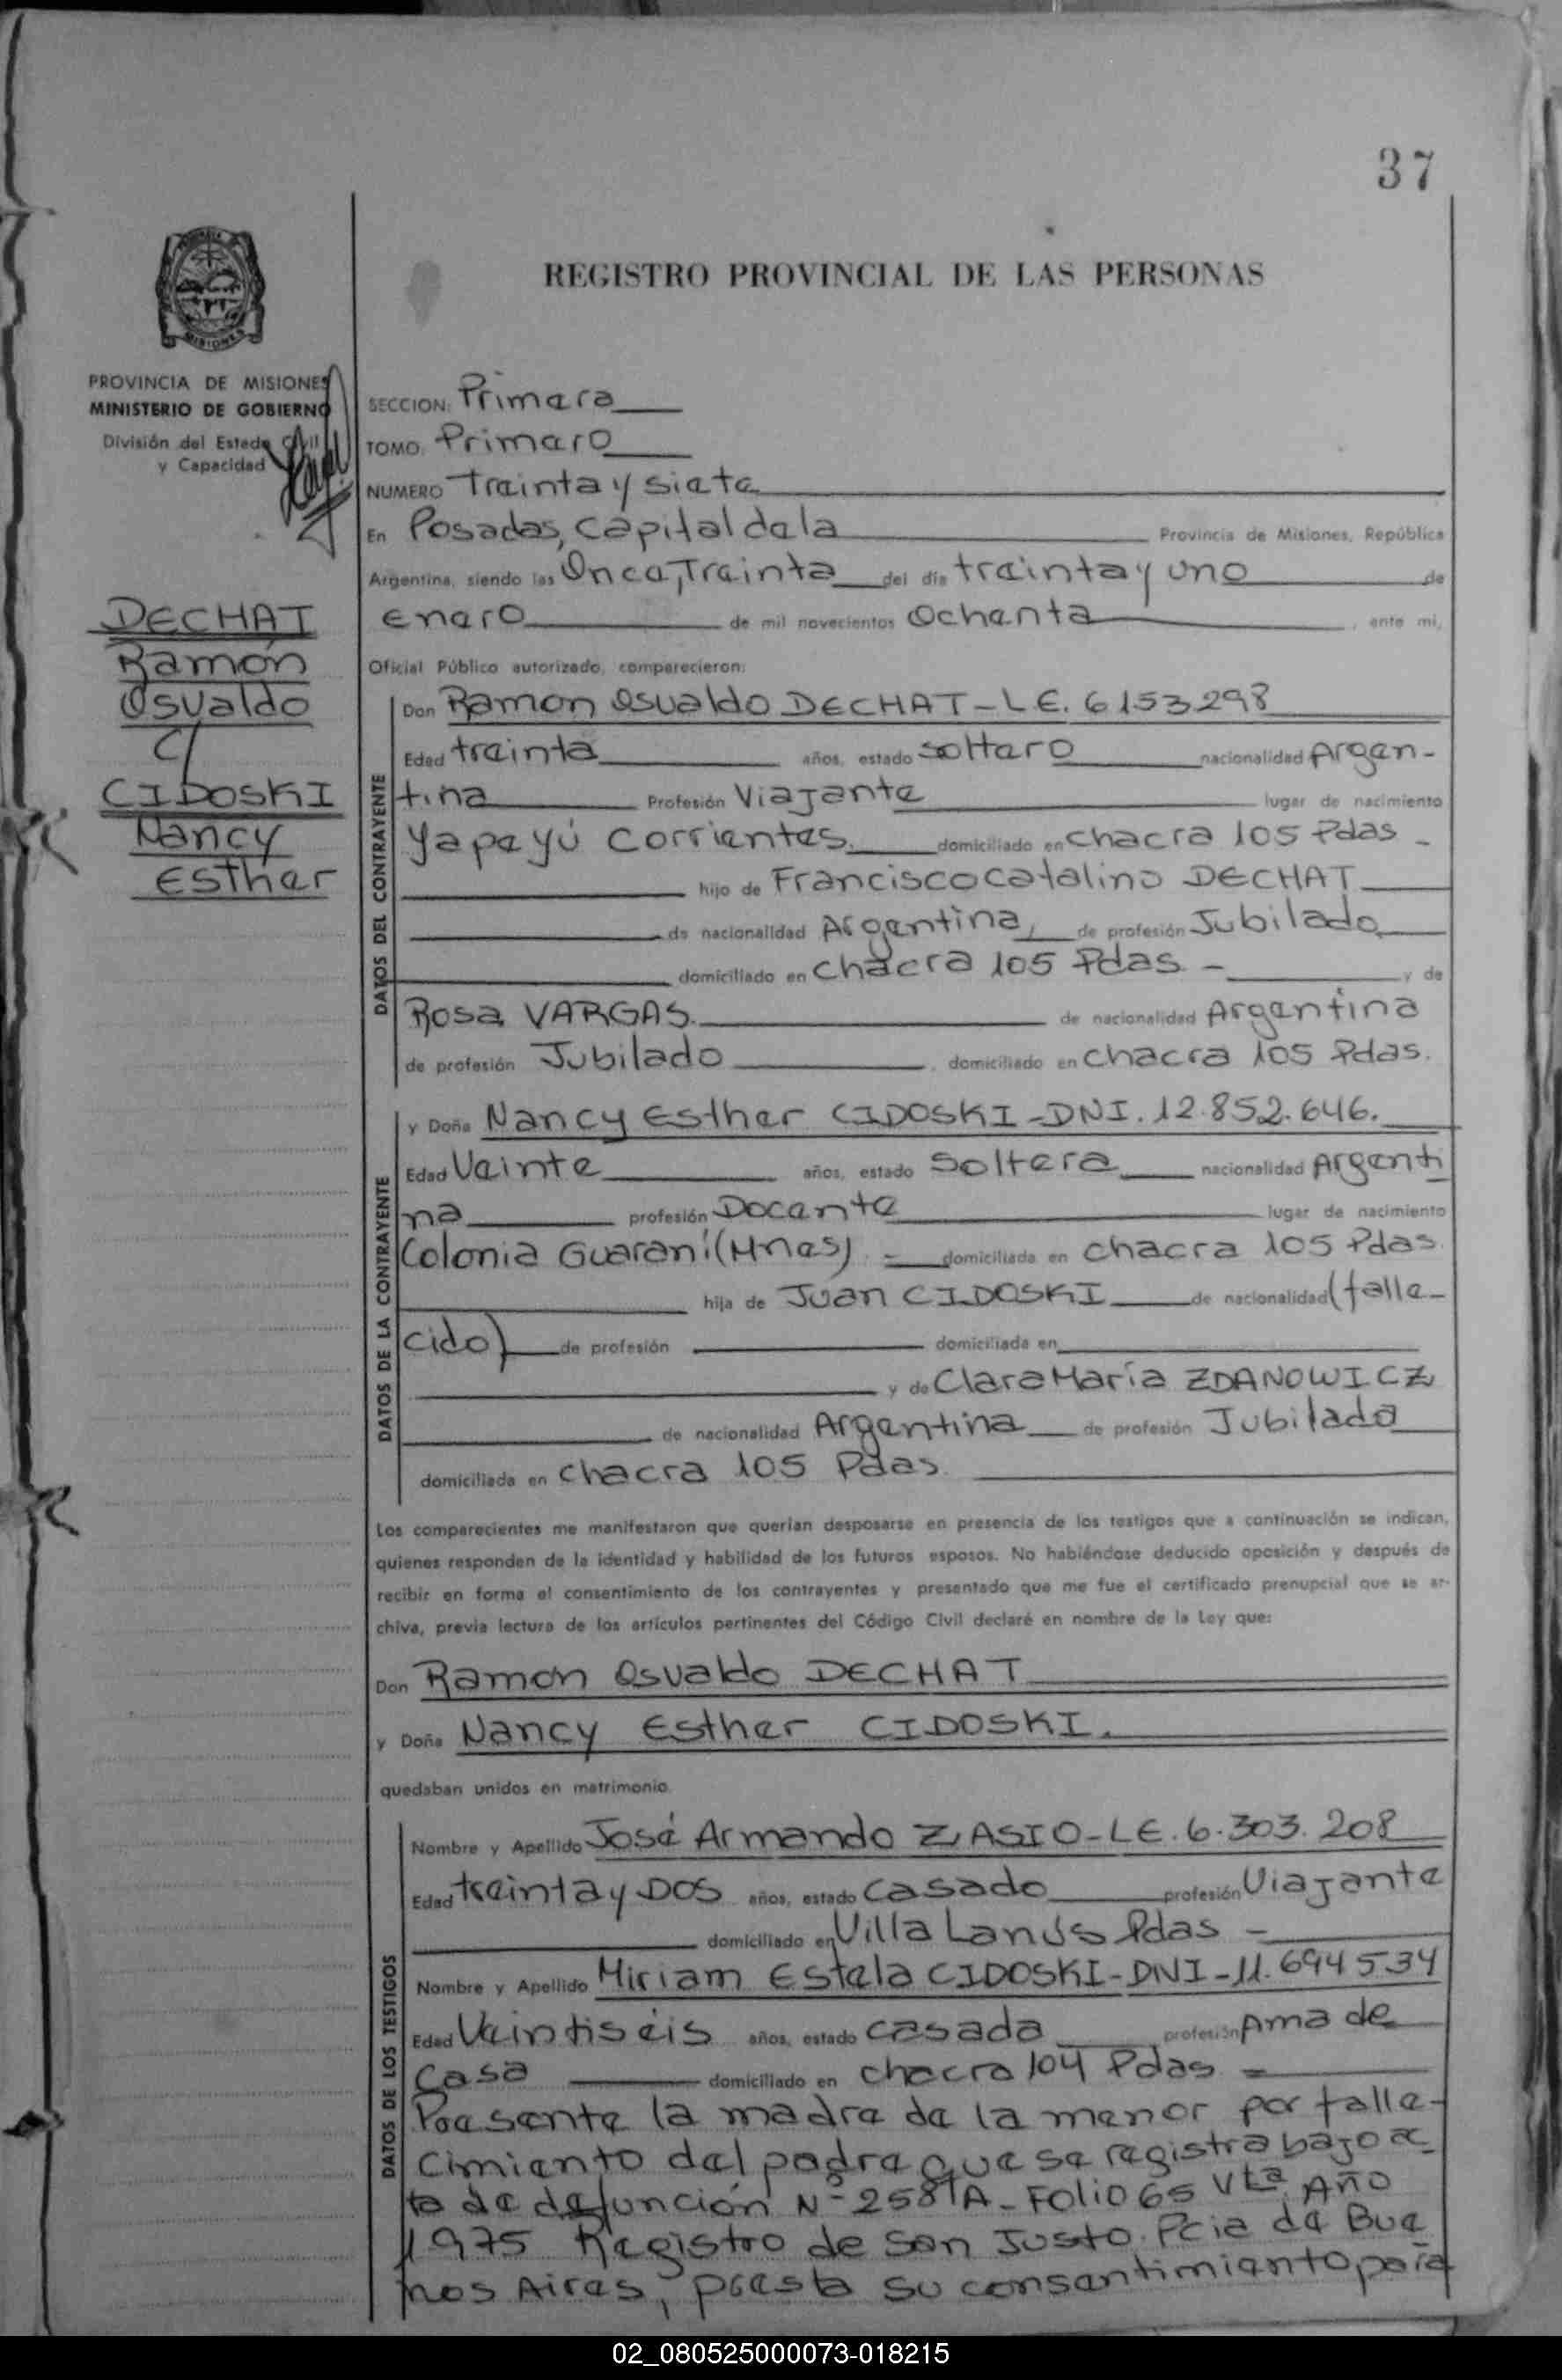 37
REGISTRO PROVINCIAL DE LAS PERSONAS
MISIONES
PROVINCIA DE MISIONES
MINISTERIO DE GOBIERNO
División del Estado Civil
y Capacidad
DECHAT
Ramón
Osvaldo
c/
CIDOSKI
Nancy
Esther
SECCION: Primera
TOMO: Primero
NUMERO Treinta y siete
En Posadas, Capital de la Provincia de Misiones, República
Argentina, siendo las Once, Treinta del día treinta y uno de
Enero de mil novecientos Ochenta, ante mi,
Oficial Público autorizado, comparecieron:
DATOS DEL CONTRAYENTE
Don Ramon Osvaldo DECHAT - L E. 6153298
Edad treinta años, estado soltero nacionalidad Argen-
tina Profesión Viajante lugar de nacimiento
Yapeyú Corrientes. domiciliado en chacra 105 Pdas -
hijo de Francisco Catalino DECHAT
de nacionalidad Argentina, de profesión Jubilado
domiciliado en chacra 105 Pdas - y de
Rosa VARGAS. de nacionalidad Argentina
de profesión Jubilado, domiciliado en chacra 105 Pdas.
DATOS DE LA CONTRAYENTE
y Doña Nancy Esther CIDOSKI - DNI. 12.852.646.
Edad Veinte años, estado Soltera nacionalidad Argenti
na profesión Docente lugar de nacimiento
Colonia Guaraní (Mnes) = domiciliada en chacra 105 Pdas.
hija de Juan CIDOSKI de nacionalidad (falle-
cido) de profesión domiciliada en
y de Clara María ZDANOWICZ
de nacionalidad Argentina de profesión Jubilada
domiciliada en chacra 105 Pdas.
Los comparecientes me manifestaron que querían desposarse en presencia de los testigos que a continuación se indican,
quienes responden de la identidad y habilidad de los futuros esposos. No habiéndose deducido oposición y después de
recibir en forma el consentimiento de los contrayentes y presentado que me fue el certificado prenupcial que se ar-
chiva, previa lectura de los artículos pertinentes del Código Civil declaré en nombre de la Ley que:
Don Ramon Osvaldo DECHAT
y Doña Nancy Esther CIDOSKI.
quedaban unidos en matrimonio.
DATOS DE LOS TESTIGOS
Nombre y Apellido José Armando ZASIO - L E. 6.303.208
Edad treinta y Dos años, estado casado profesión Viajante
domiciliado en Villa Lanús Pdas -
Nombre y Apellido Miriam Estela CIDOSKI - DNI - 11.694534
Edad Veintiseis años, estado casada profesión Ama de
Casa domiciliado en chacra 104 Pdas =
Presente la madre de la menor por falle-
cimiento del padre que se registra bajo ac
ta de defunción Nº 258TA - Folio 65 Vta Año
1975 Registro de San Justo. Pcia de Bue
nos Aires, presta su consentimiento para
02_080525000073-018215